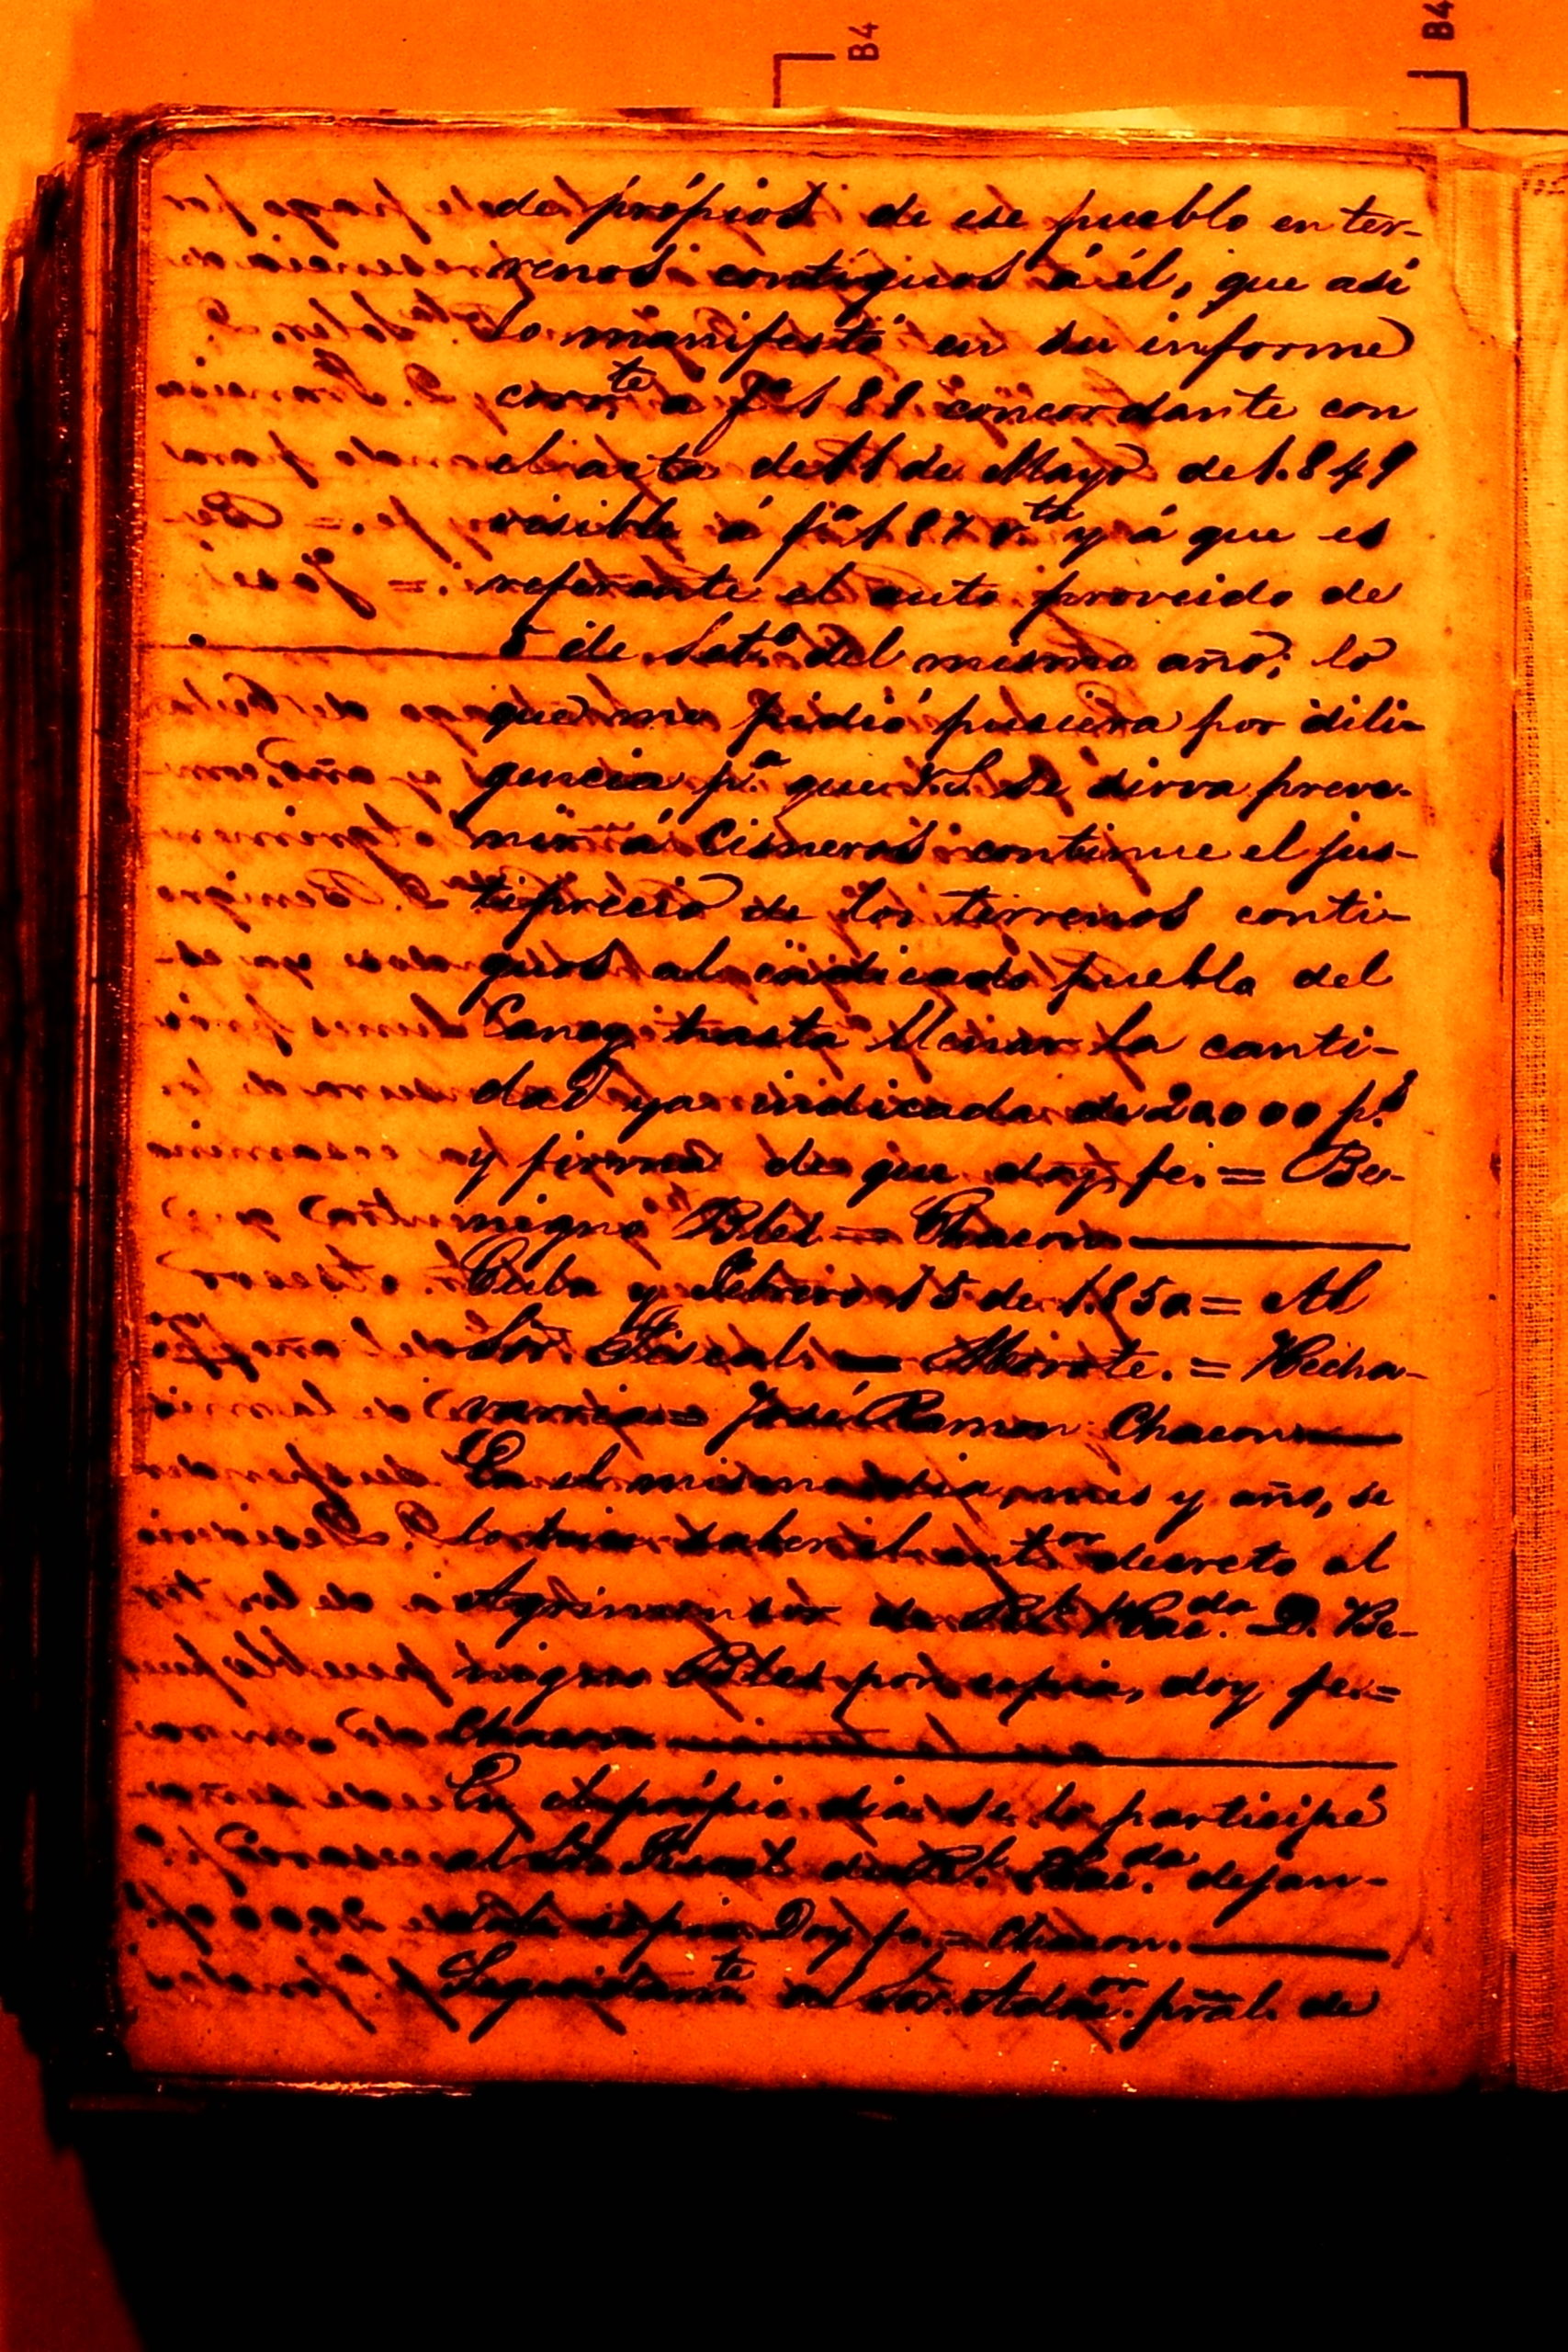 B4
B4
de própios de ese pueblo en ter-
renos contiguos á él, que asi
lo manifestó en su informe
corr.te a f.s 181 concordante con
el acta de 11 de Mayo de 1.849
visible á f.s 187 v.ta y á que es
referente el auto proveido de
5 de Set.e del mismo año; lo
que me pidió pusiera por dili-
gencia p.a que V.S. se sirva preve-
nir á Cisneros continue el jus-
tiprecio de los terrenos conti-
guos al indicado pueblo del
Caney hasta llenar la canti-
dad ya indicada de 20.000 p.s
y firma de que doy fe. = Be-
nigno Bles = Chacon
Cuba y Febrero 15 de 1.850 = Al
Sor. Fiscal. = Morote. = Hecha-
varria = José Ramon Chacon
En el mismo dia, mes y año, se
hice saber el ant.or decreto al
Agrimensor de Rl. Hac.da D. Be-
nigno Bles por copia, doy fe. =
Chacon
En el própio dia se lo participé
al Sor. Fiscal de Rl. Hac.da dejan-
dole copia. Doy fe. = Chacon.
Seguidam.te al Sor. Adm.or pral. de